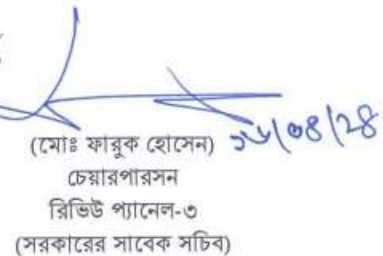 (মোঃ ফারুক হোসেন) ১৬/০৪/২৪
চেয়ারপারসন
রিভিউ প্যানেল-৩
(সরকারের সাবেক সচিব)